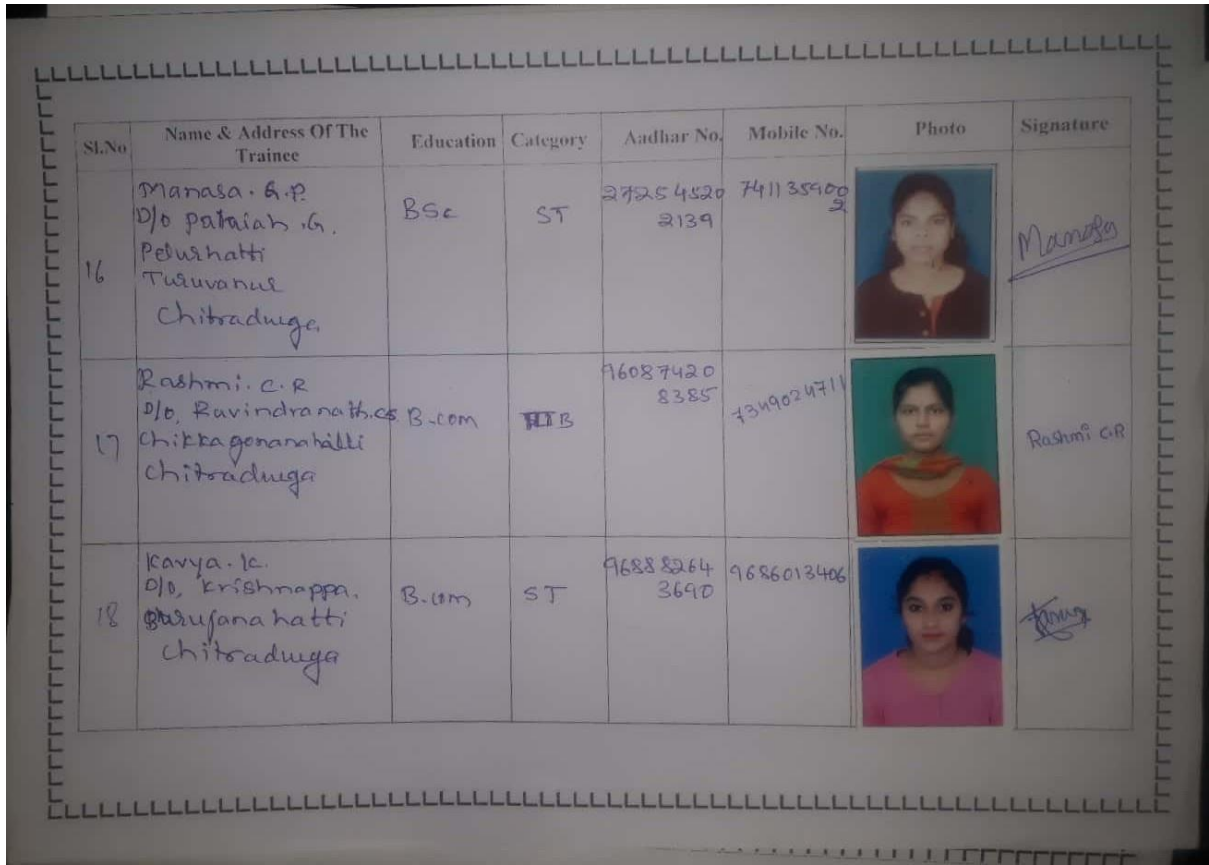 Sl.No Name & Address Of The Trainee Education Category Aadhar No. Mobile No. Photo Signature
16
Manasa. G.P.
D/o Pataiah .G.
Pelurhatti
Turuvanur
Chitradurga
BSc
ST
27254520
2139
741135900
2
Manasa
17
Rashmi. C.R
D/o, Ravindranath.cs
Chikkagonanahalli
Chitradurga
B.com
B
96087420
8385
7349024711
Rashmi C.R
18
Kavya. K.
D/o, Krishnappa.
Chitradurga
B.com
ST
96888264
3690
9686013406